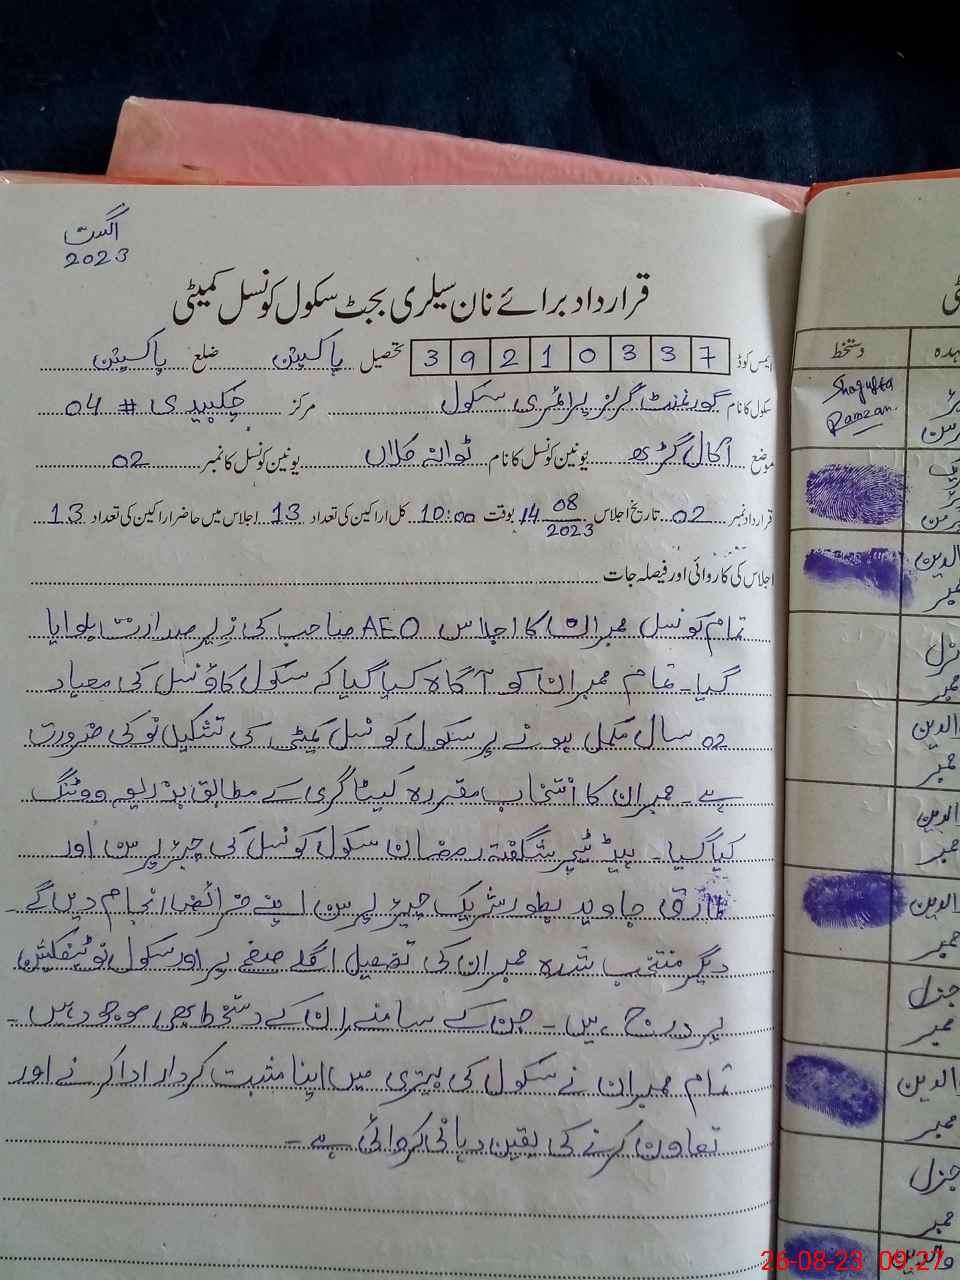 اگست
2023
قرارداد برائے نان سیلری بجٹ سکول کونسل کمیٹی
ایمس کوڈ 3 9 2 1 0 3 3 7 تحصیل پاکپتن ضلع پاکپتن
سکول کا نام گورنمنٹ گرلز پرائمری سکول مرکز چکبیدی # 04
موضع اکال گڑھ یونین کونسل کا نام ٹوانہ کلاں یونین کونسل کا نمبر 02
قرارداد نمبر 02 تاریخ اجلاس 14 08 2023 بوقت 10:00 کل اراکین کی تعداد 13 اجلاس میں حاضر اراکین کی تعداد 13
اجلاس کی کاروائی اور فیصلہ جات
تمام کونسل ممبران کا اجلاس AEO صاحب کی زیر صدارت بلوایا
گیا۔ تمام ممبران کو آگاہ کیا گیا کہ سکول کاؤنسل کی معیاد
02 سال مکمل ہونے پر سکول کونسل کمیٹی کی تشکیل نو کی ضرورت
ہے۔ ممبران کا انتخاب مقررہ کیٹاگری کے مطابق بذریعہ ووٹنگ
کیا گیا۔ ہیڈ ٹیچر شگفتہ رمضان سکول کونسل کی چیئرپرسن اور
طارق جاوید بطور شریک چیئرپرسن اپنے فرائض انجام دیں گے۔
دیگر منتخب شدہ ممبران کی تفصیل اگلے صفحے پر اور سکول نوٹیفکیشن
پر درج ہیں۔ جن کے سامنے ان کے دستخط بھی موجود ہیں۔
تمام ممبران نے سکول کی بہتری میں اپنا مثبت کردار ادا کرنے اور
تعاون کرنے کی یقین دہانی کروائی ہے۔
دستخط
Shagufta
Ramzan.
الدین
ممبر
جنرل
ممبر
والدین
26-08-23 09:27